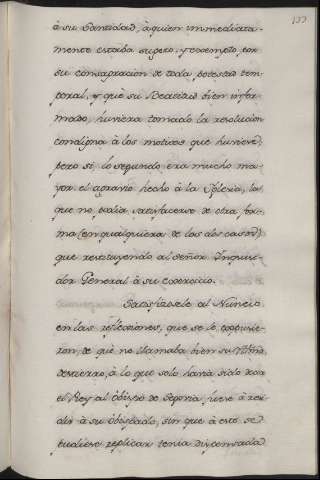 133
à su Santidad, à quien immediata-
mente estaba sugeto, y exempto, por
su consagracion de toda potestad tem-
poral, y què su Beatitud bien infor-
mado, huviera tomado la resolucion
condigna à los motivos que huviese,
pero si lo segundo era mucho ma-
yor el agravio hecho à la Iglesia, la
que no podia satisfacerse de otra for-
ma (en qualquiera de los dos casos)
que restituyendo al señor Inqui-
dor General à su exercicio.
Satisfizosele al Nuncio
en las reflexiones, que se le propusie-
ron, de què no llamaba bien su
destierro, à lo que solo havia sido
el Rey al Obispo de Segovia, fuese à resi-
dir à su Obispado, sin que à este se
pudiese replicar tenia dispensada